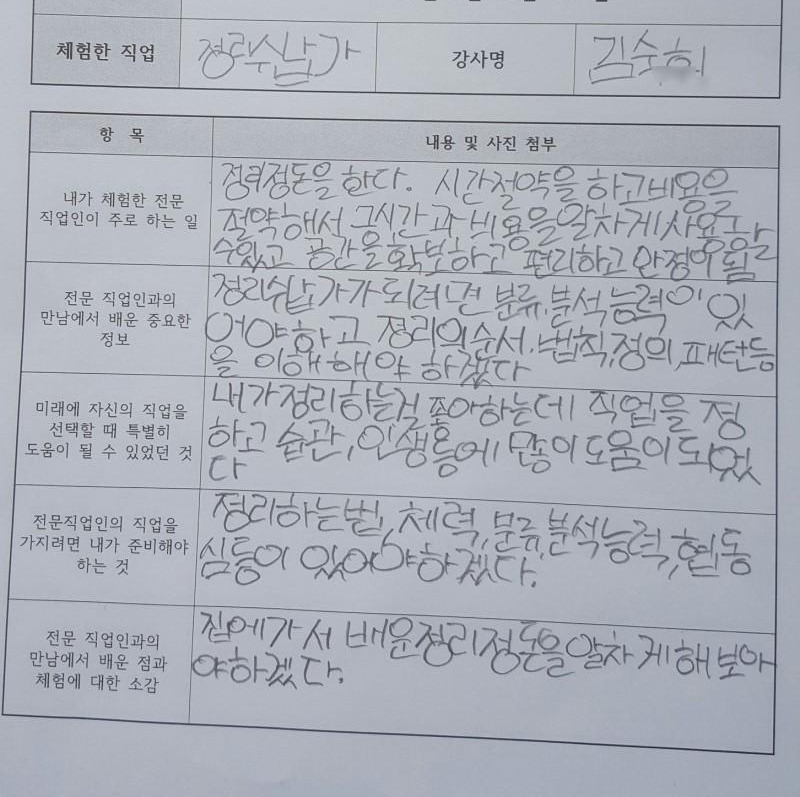 체험한 직업 정리수납가 강사명 김수희
항 목 내용 및 사진 첨부
내가 체험한 전문
직업인이 주로 하는 일
정리정돈을 한다. 시간절약을 하고비용을
절약해서 그시간과 비용을알차게사용할
수있고 공간을확보하고 편리하고 안정이됨
전문 직업인과의
만남에서 배운 중요한
정보
정리수납가가되려면 분류,분석능력이 있
어야하고 정리의수서,법칙,정의,패턴등
을 이해해야 하겠다
미래에 자신의 직업을
선택할 때 특별히
도움이 될 수 있었던 것
내가정리하는걸 좋아하는데 직업을 정
하고 습관,인생등에 많이도움이되었
다
전문직업인의 직업을
가지려면 내가 준비해야
하는 것
정리하는법, 체력,분류,분석능력,협동
심등이 있어야하겠다.
전문 직업인과의
만남에서 배운 점과
체험에 대한 소감
집에가서 배운정리정돈을알차게해보아
야하겠다.